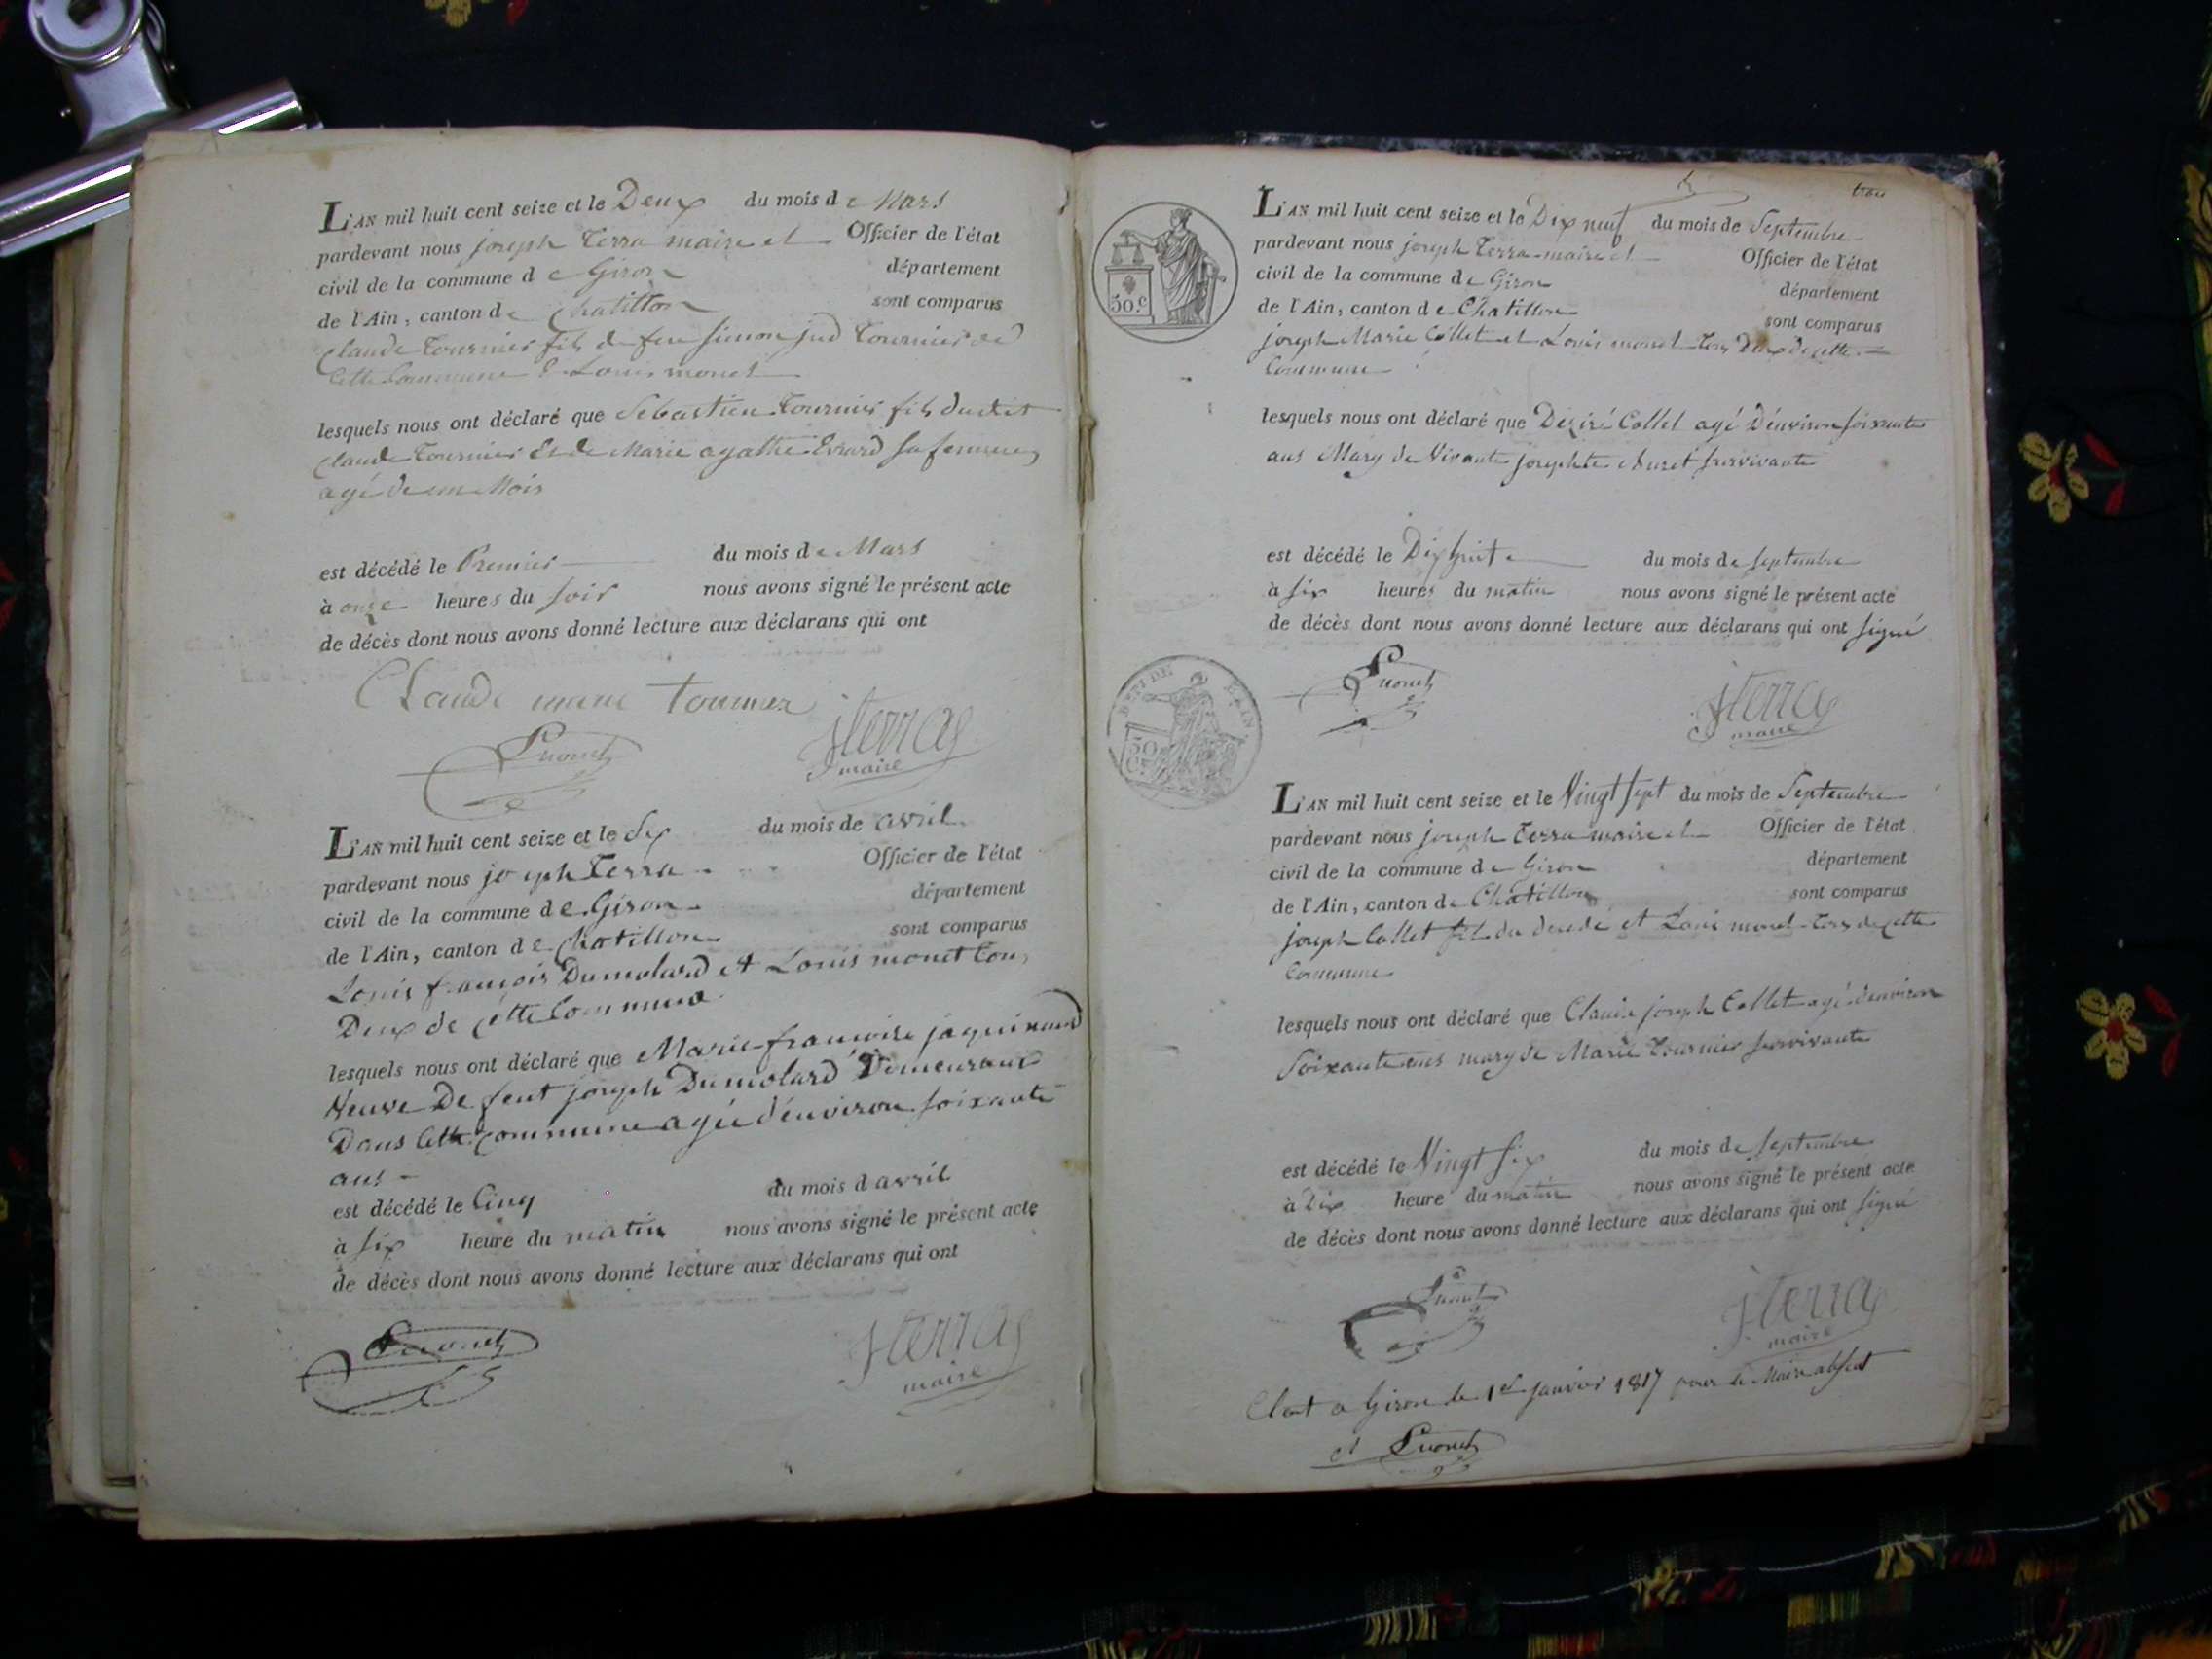 L'AN mil huit cent seize et le Deux du mois de Mars
pardevant nous joseph Terra maire et Officier de l'état
civil de la commune de Giron département
de l'Ain, canton de Chatillon sont comparus
Claude Tournier fils de feu simon jud Tournier de
Cette Commune & Louis monet
lesquels nous ont déclaré que Sebastien Tournier fils dudit
Claude Tournier Et de Marie agathe Evrard sa femme
agé de un Mois
est décédé le Premier du mois de Mars
à onze heures du soir nous avons signé le présent acte
de décès dont nous avons donné lecture aux déclarans qui ont
Claude marie tournier
Lmonet
jterra
maire
L'AN mil huit cent seize et le Six du mois de avril
pardevant nous joseph Terra Officier de l'état
civil de la commune de Giron département
de l'Ain, canton de Chatillon sont comparus
Louis françois Dumolard et Louis monet tou,
Deux de cette Commune
lesquels nous ont déclaré que Marie francoise jaquinaud
Veuve De feut joseph Dumolard Demeurant
Dans Cette commune agée d'environ soixante
ans
est décédé le Cinq du mois d avril
à six heure du matin nous avons signé le présent acte
de décès dont nous avons donné lecture aux déclarans qui ont
Lmonet
jterra
maire
trois
L'AN mil huit cent seize et le Dix neuf du mois de Septembre
pardevant nous joseph Terra maire et Officier de l'état
civil de la commune de Giron département
de l'Ain, canton de Chatillon sont comparus
50.c
joseph Marie Collet et Louis monet tous Deux de cette
Commune
lesquels nous ont déclaré que Déziré Collet agé D'environ soixante
ans Mary de Vivante josephte survivante
est décédé le Dix huit du mois de septembre
à six heures du matin nous avons signé le présent acte
de décès dont nous avons donné lecture aux déclarans qui ont signé
50
C.
Lmonet
jterra
maire
L'AN mil huit cent seize et le Vingt sept du mois de Septembre
pardevant nous joseph Terra maire et Officier de l'état
civil de la commune de Giron département
de l'Ain, canton de Chatillon sont comparus
joseph Collet fils du decedé et Louis monet tous de cette
Commune
lesquels nous ont déclaré que Claude joseph Collet agé d'environ
Soixante ans mary de Marie Tournier survivante
est décédé le Vingt six du mois de septembre
à dix heure du matin nous avons signé le présent acte
de décès dont nous avons donné lecture aux déclarans qui ont signé
Lmonet
jterra
maire
Clot a Giron le 1er janvier 1817 pour le Maire absent
Lmonet